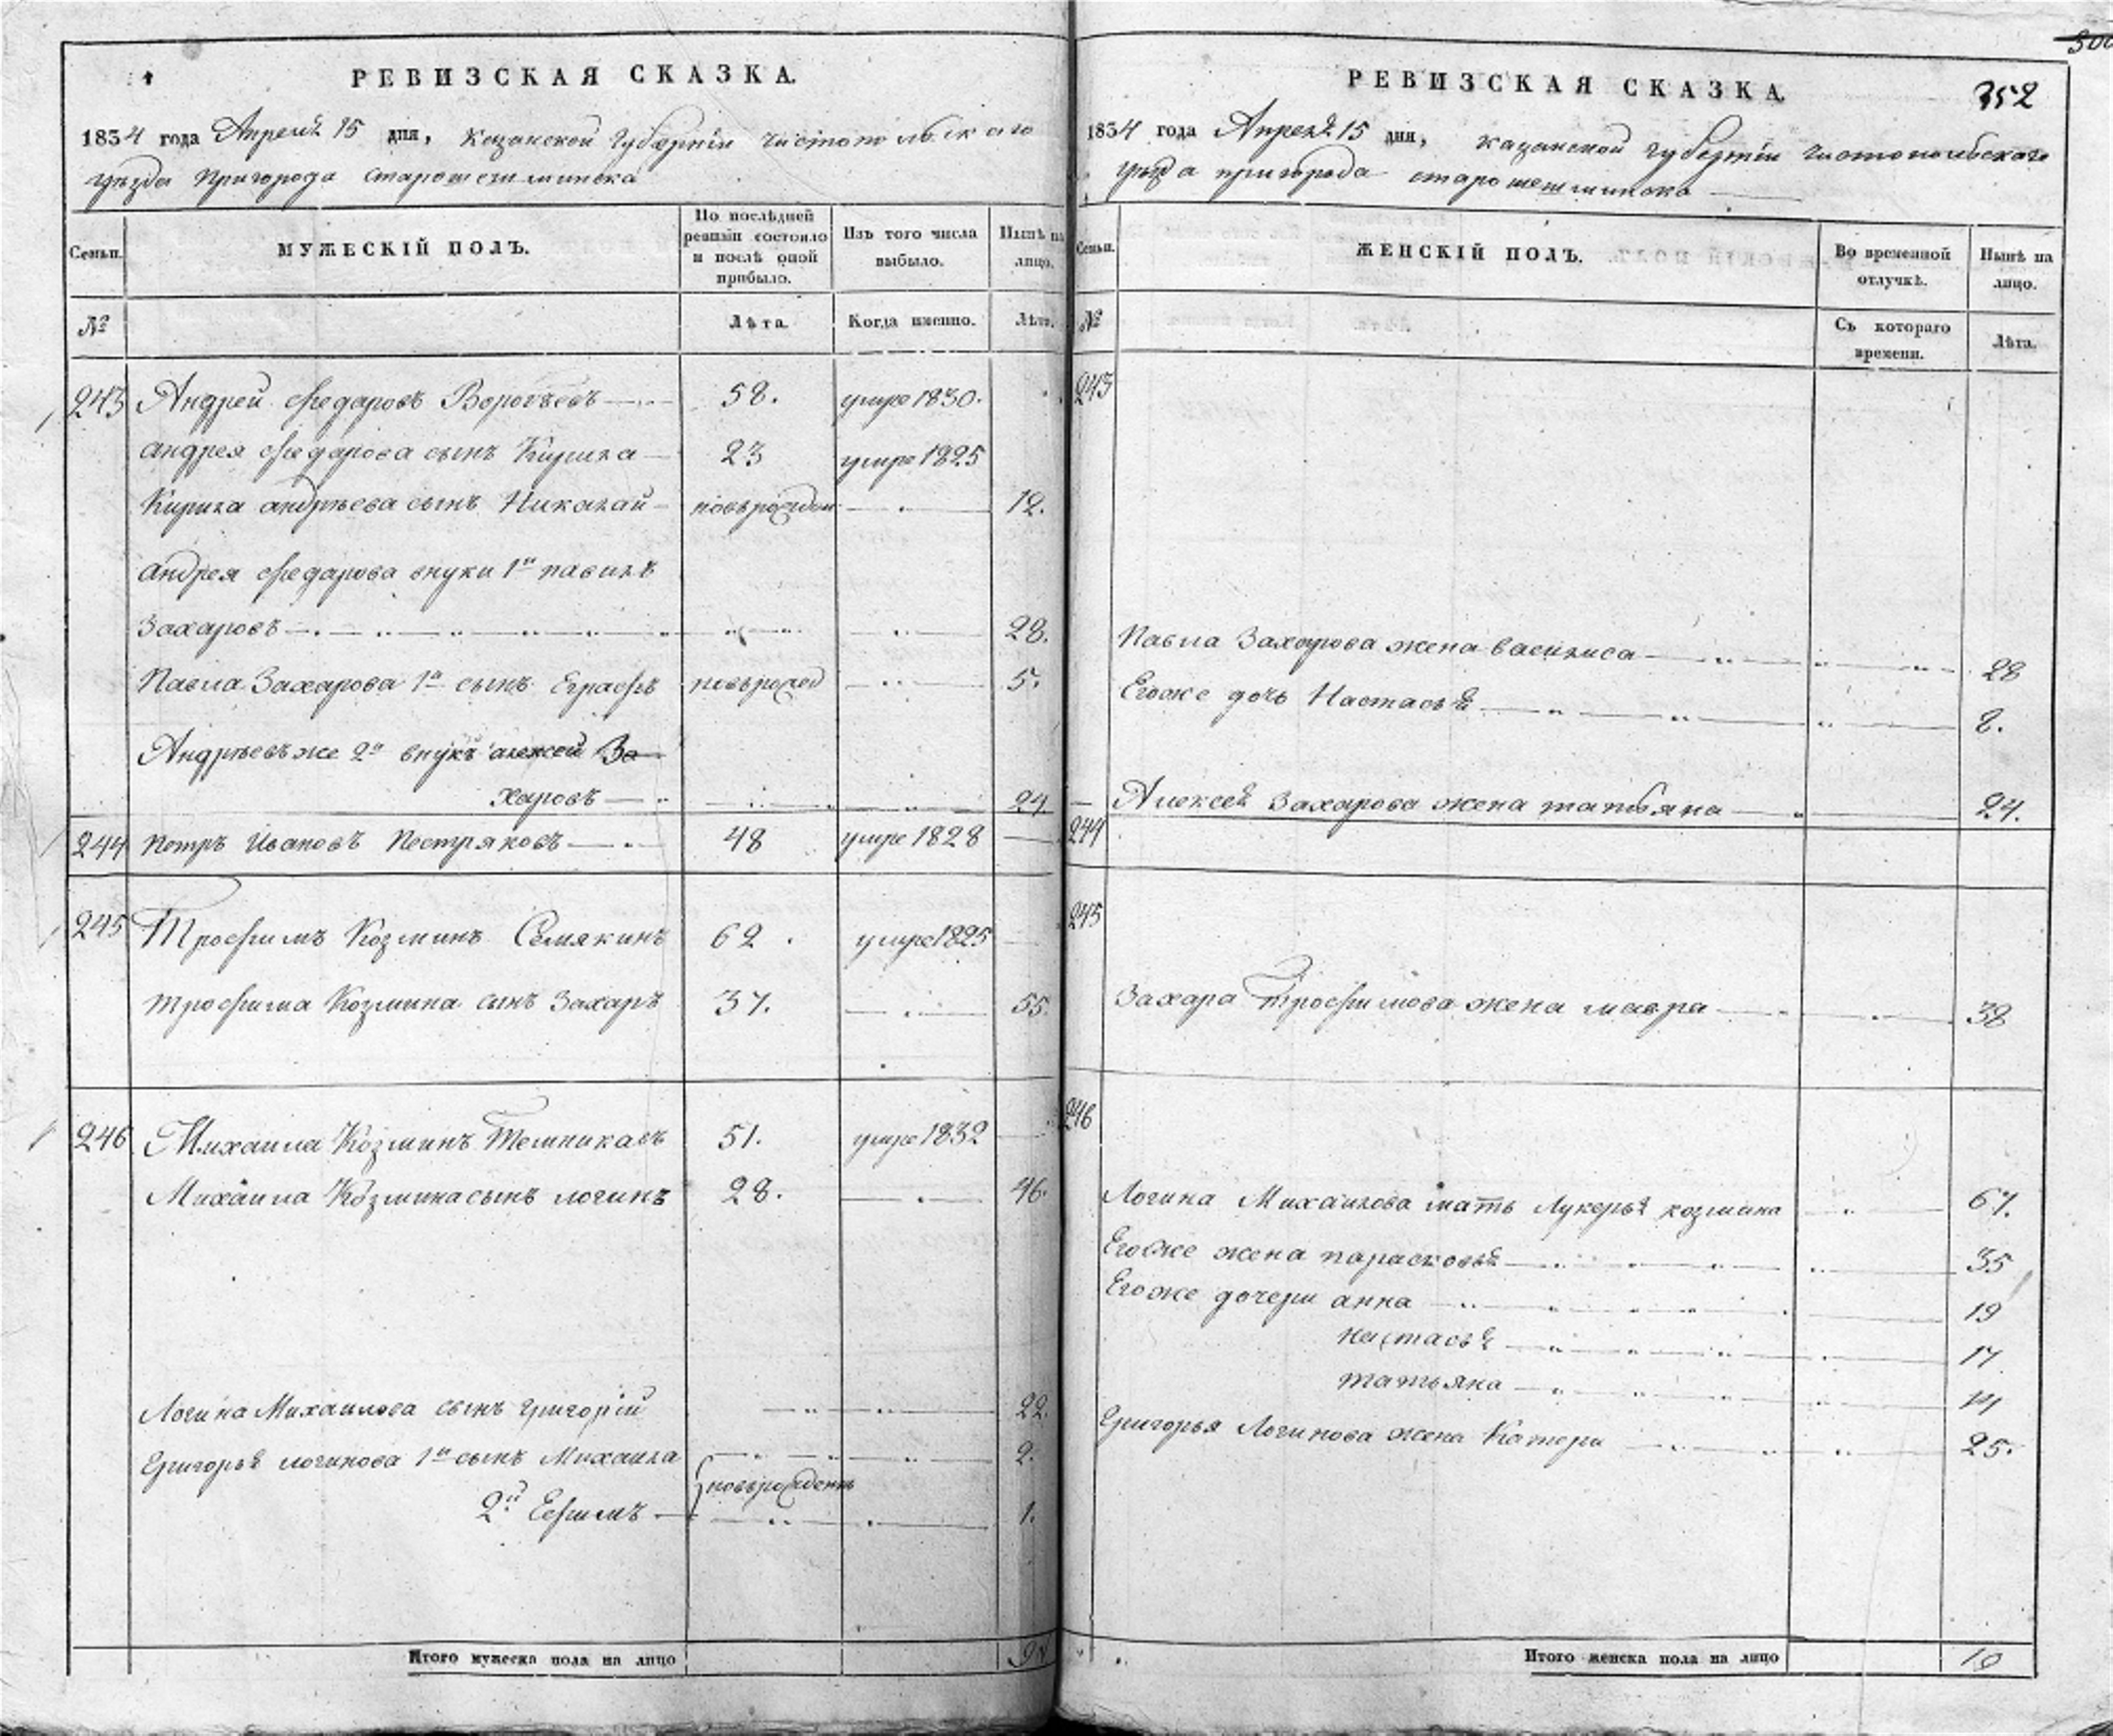 РЕВИЗСКАЯ СКАЗКА.
1834 года Апреля 15 дня, Казанской Губернiи Чистопольскаго
уѣзда пригорода старошешминска
Семьи.
МУЖЕСКIЙ ПОЛЪ.
По послѣдней ревизiи состояло и послѣ оной прибыло.
Изъ того числа выбыло.
Нынѣ на лицо.
№
Лѣта.
Когда именно.
Лѣта.
243 Андрей Федаровъ 58. умре 1830.
андрея федарова сынъ Кирила 23 умре 1825
Кирила андрѣева сынъ Никалай новърожден 12.
андрея федарова внуки 1й павилъ
Захаровъ 28.
Павла Захарова 1й сынъ новърожд 5.
Андрѣевъ же 2й внукъ алексей За
харовъ 24.
244 петръ Ивановъ Пестряковъ 48 умре 1828
245 Трофимъ Козминъ Семякинъ 62. умре 1825
трофима Козмина сынъ Захаръ 37. 55.
246 Михаила Козминъ Темникавъ 51. умре 1832
Михаила Козмина сынъ логинъ 28. 46.
Логина Михаилова сынъ григорiй 22.
Григорья логинова 1й сынъ Михаила 2.
новърожденъ
2й Ефимъ 1.
Итого мужеска пола на лицо
352
РЕВИЗСКАЯ СКАЗКА.
1834 года Апреля 15 дня, казанской губернiи чистопольскаго
уѣзда пригорода старошешминска
Семьи.
ЖЕНСКIЙ ПОЛЪ.
Во временной отлучкѣ.
Нынѣ на лицо.
№
Съ котораго времени.
Лѣта.
243
Павла Захарова жена василиса 28
Егоже дочь Настасья 8.
Алексея Захарова жена татьяна 24.
244
245
Захара Трофимова жена мавра 38
246
Логина Михаилова мать Лукерья козмина 67.
Егоже жена парасковья 35
Егоже дочери анна 19
настасья 17
татьяна 14
Григорья Логинова жена Катери 25.
Итого женска пола на лицо 10